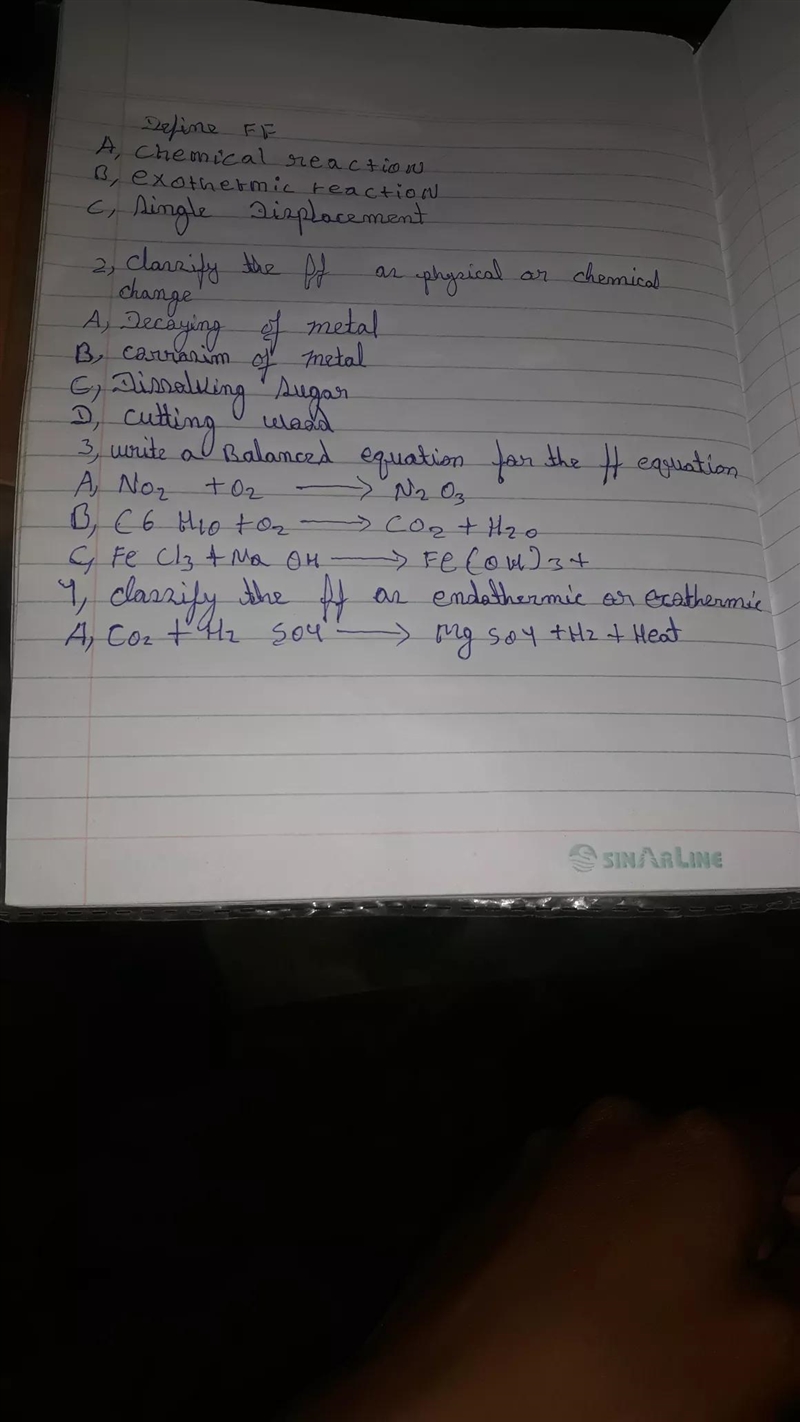 Define FF
A, Chemical reaction
B, exothermic reaction
C, Single Displacement
2, Classify the ff as physical or chemical
change
A, Decaying of metal
B, carrasim of metal
C, Dissolving sugar
D, cutting wood
3, write a Balanced equation for the ff equation
A, NO2 + O2 → N2 O3
B, C6 H10 + O2 → CO2 + H2O
C, Fe Cl3 + Na OH → Fe(OH)3 +
4, classify the ff as endothermic or exothermic
A, CO2 + H2 SO4 → Mg SO4 + H2 + Heat
SINARLINE